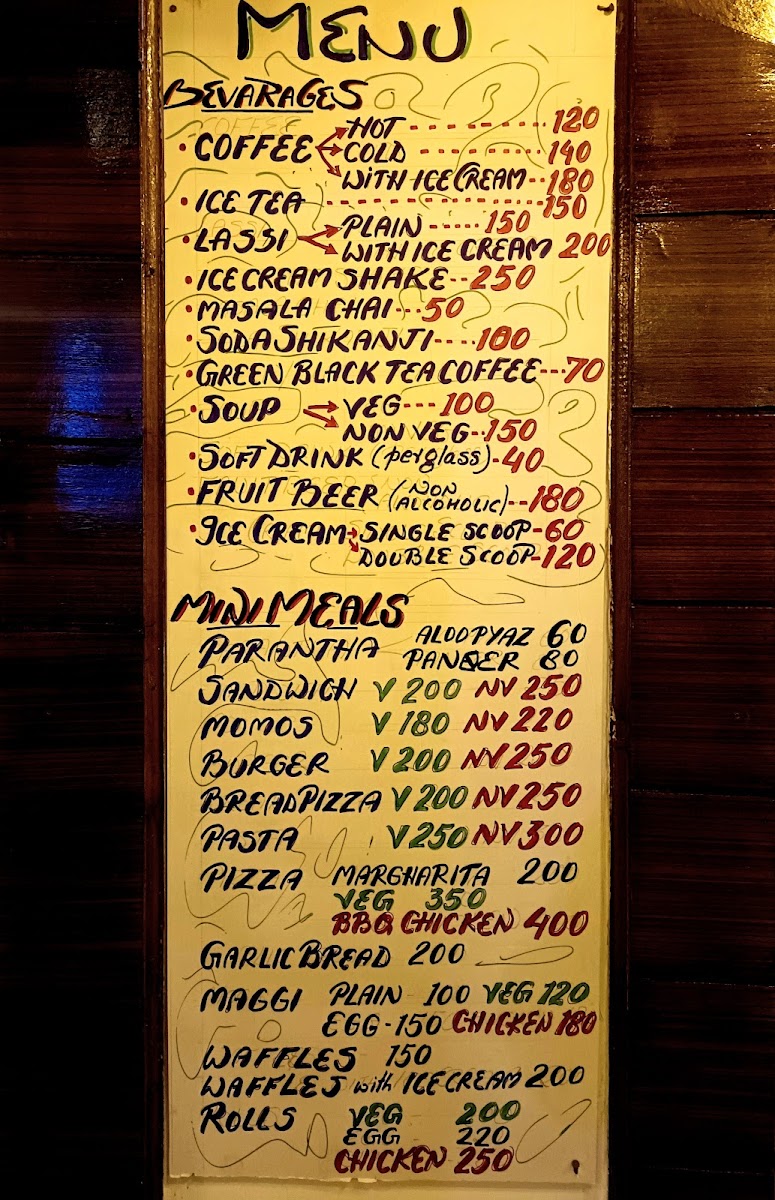 MENU
BEVARAGES
• COFFEE HOT -------- 120
COLD -------- 140
WITH ICE CREAM -- 180
• ICE TEA -------------- 150
• LASSI PLAIN ----- 150
WITH ICE CREAM 200
• ICE CREAM SHAKE -- 250
• MASALA CHAI --- 50
• SODA SHIKANJI ---- 100
• GREEN BLACK TEA COFFEE --- 70
• SOUP VEG --- 100
NON VEG -- 150
• SOFT DRINK (perglass) - 40
• FRUIT BEER (NON ALCOHOLIC) -- 180
• ICE CREAM SINGLE SCOOP - 60
DOUBLE SCOOP - 120
MINI MEALS
PARANTHA ALOO PYAZ 60
PANEER 80
SANDWICH V 200 NV 250
MOMOS V 180 NV 220
BURGER V 200 NV 250
BREAD PIZZA V 200 NV 250
PASTA V 250 NV 300
PIZZA MARGHARITA 200
VEG 350
BBQ CHICKEN 400
GARLIC BREAD 200
MAGGI PLAIN - 100 VEG 120
EGG - 150 CHICKEN 180
WAFFLES 150
WAFFLES with ICE CREAM 200
ROLLS VEG 200
EGG 220
CHICKEN 250